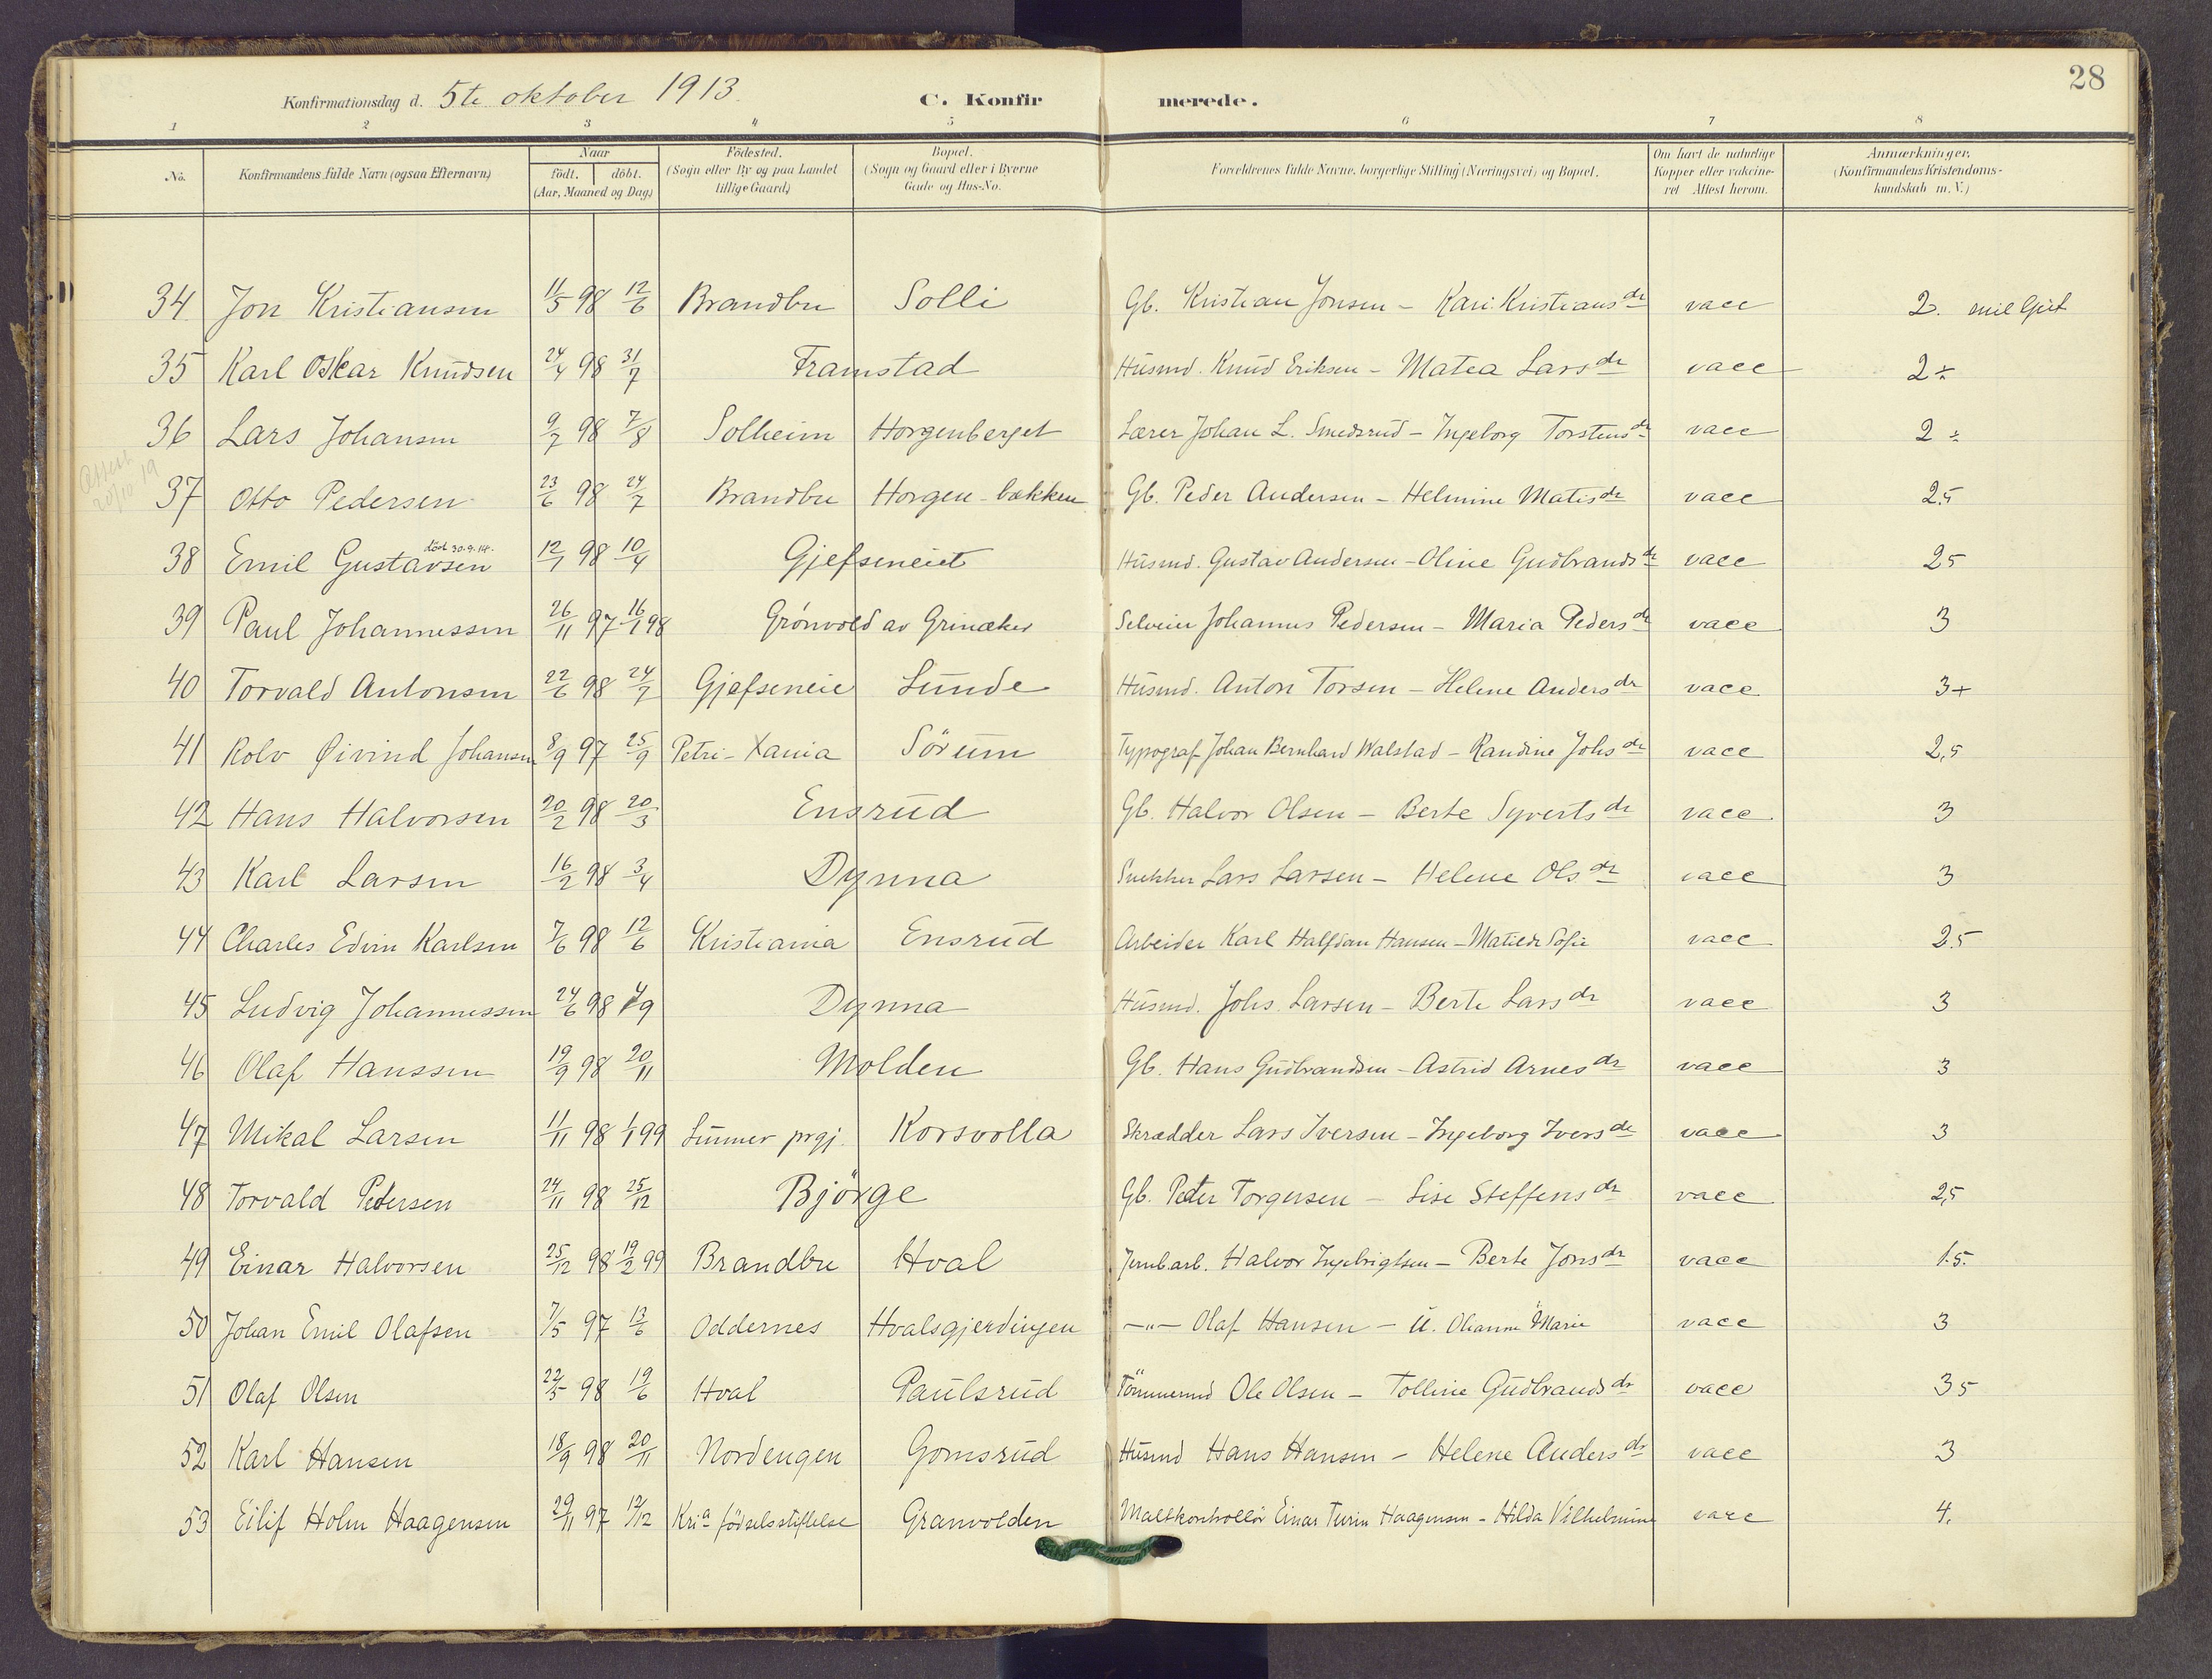 28
Konfirmationsdag d. 5te oktober 1913. C. Konfirmerede.
1 2 3 4 5 6 7 8
No. Konfirmandens fulde Navn (ogsaa Efternavn) Naar födt. döbt. (Aar, Maaned og Dag) Födested. (Sogn eller By og paa Landet tillige Gaard) Bopæl. (Sogn og Gaard eller i Byerne Gade og Hus-No. Forældrenes fulde Navne, borgerlige Stilling (Næringsvei) og Bopæl. Om havt de naturlige Kopper eller vakcineret Attest herom. Anmærkninger. (Konfirmandens Kristendomskundskab m. V.)
34 Jon Kristiansen 11/5 98 12/6 Brandbu Solli Gb. Kristian Jonsen - Kari Kristiansdr vacc 2.
35 Karl Oskar Knudsen 24/4 98 31/7 Framstad Husmd. Knud Eriksen - Matea Larsdr vacc 2÷
36 Lars Johansen 9/7 98 7/8 Solheim Horgenberget Lærer Johan L. Smedsrud - Ingeborg Torstensdr vacc 2÷
Attest 20/10 19
37 Otto Pedersen 23/6 98 24/7 Brandbu Horgen-bækken Gb. Peder Andersen - Helmine Matisdr vacc 2.5
38 Emil Gustavsen död 30.9.14. 12/1 98 10/4 Gjefseneiet Husmd. Gustav Andersen - Oline Gudbrandsdr vacc 25
39 Paul Johannessen 26/11 97 16/1 98 Grönvold av Grinaker Selveier Johannes Pedersen - Maria Pedersdr vacc 3
40 Torvald Antonsen 22/6 98 24/7 Gjefseneie Lunde Husmd. Anton Torsen - Helene Andersdr vacc 3+
41 Rolv Øivind Johansen 8/9 97 25/9 Petri-Xania Sörum Typograf Johan Bernhard Walstad - Randine Johsdr vacc 2,5
42 Hans Halvorsen 20/2 98 20/3 Ensrud Gb. Halvor Olsen - Berte Syvertsdr vacc 3
43 Karl Larsen 16/2 98 3/4 Dynna Snekker Lars Larsen - Helene Olsdr vacc 3
44 Charles Edvin Karlsen 7/6 98 12/6 Kristiania Ensrud Arbeider Karl Halfdan Hansen - Matilde Sofie vacc 2.5
45 Ludvig Johannessen 24/6 98 4/9 Dynna Husmd. Johs. Larsen - Berte Larsdr vacc 3
46 Olaf Hanssen 19/9 98 20/11 Molden Gb. Hans Gudbrandsen - Astrid Arnesdr vacc 3
47 Mikal Larsen 11/11 98 1/1 99 Lunner prgj. Korsvolla Skrædder Lars Iversen - Ingeborg Iversdr vacc 3
48 Torvald Petersen 24/11 98 25/12 Björge Gb. Peter Torgersen - Lise Steffensdr vacc 2,5
49 Einar Halvorsen 25/12 98 19/2 99 Brandbu Hval Jernb.arb. Halvor Ingebrigtsen - Berte Jonsdr vacc 1.5.
50 Johan Emil Olafsen 7/5 97 13/6 Oddernes Hvalsgjerdingen -"- Olaf Hansen - u. Olianna Marie vacc 3
51 Olaf Olsen 22/5 98 19/6 Hval Paulsrud Tömmermd Ole Olsen - Tolline Gudbrandsdr vacc 35
52 Karl Hansen 18/9 98 20/11 Nordengen Gomsrud Husmd Hans Hansen - Helene Andersdr vacc 3
53 Eilif Holm Haagensen 29/11 97 12/12 Kria födselsstiftelse Granvolden Maltkontrollör Einar Turin Haagensen - Hilda Vilhelmine vacc 4.